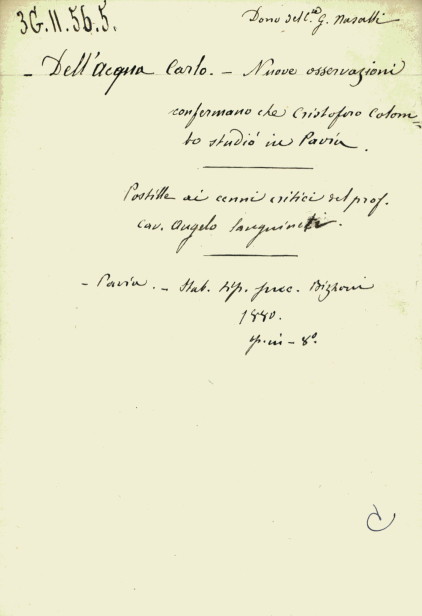 3G.II.56.5.
Dono del C.te G. Nasalli
- Dell'Acqua Carlo. - Nuove osservazioni
confermano che Cristoforo Colom=
bo studiò in Pavia.
Postille ai cenni critici del prof.
cav. Angelo Sanguineti.
- Pavia. - Stab. tip. succ. Bizzoni
1880.
in - 8º.